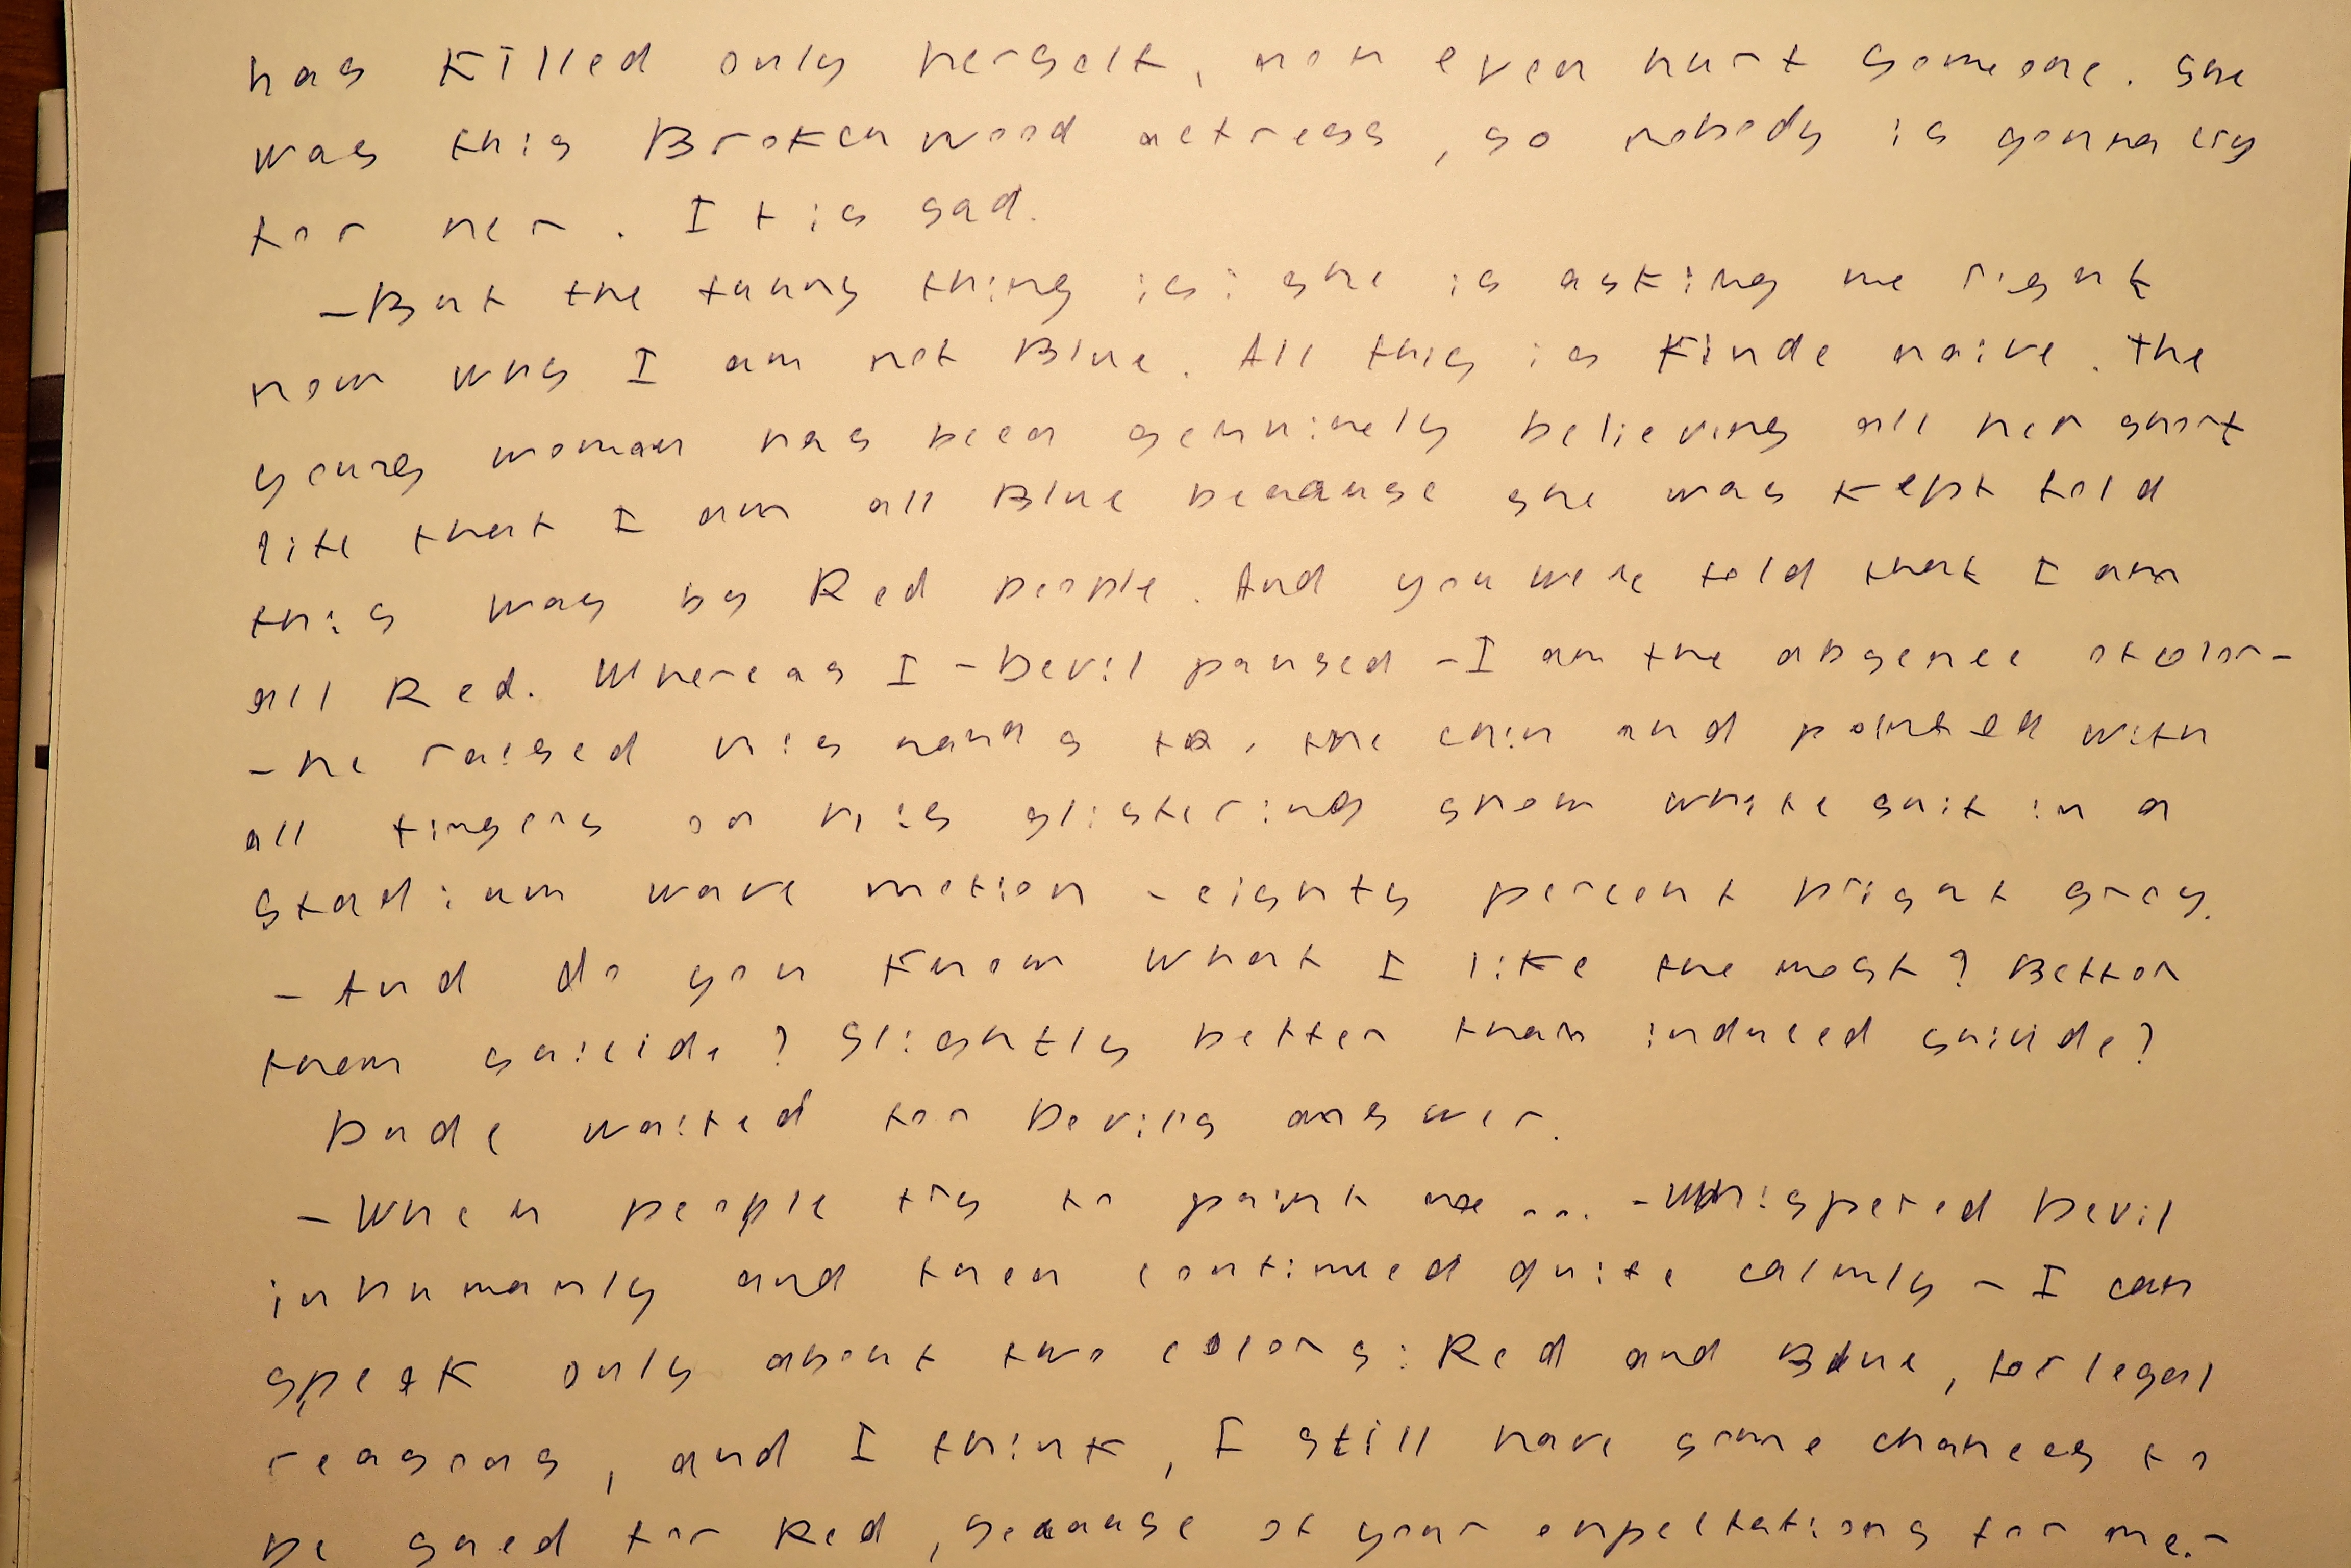 has killed only herself, non even hurt someone. She
was this Brokenwood actress, so nobody is gonna cry
for her. It is sad.
-But the funny thing is: she is asking me right
now why I am not Blue. All this is kinde naive. The
young woman has been genuinely believing all her short
life that I am all Blue because she was kept told
this way by Red people. And you were told that I am
all Red. Whereas I - Devil paused - I am the absence of color-
- he raised his hands to the chin and pointed with
all fingers on his glistering snow white suit in a
stadium wave motion - eighty percent bright grey.
- And do you know what I like the most? Better
them suicide? Slightly better than induced suicide?
Dude waited for Devils answer.
- When people try to paint me ... - whispered Devil
inhumanly and then continued quite calmly - I can
speak only about two colors: Red and Blue, for legal
reasons, and I think, I still have some chances to
be sued for Red, because of your expectations for me. -